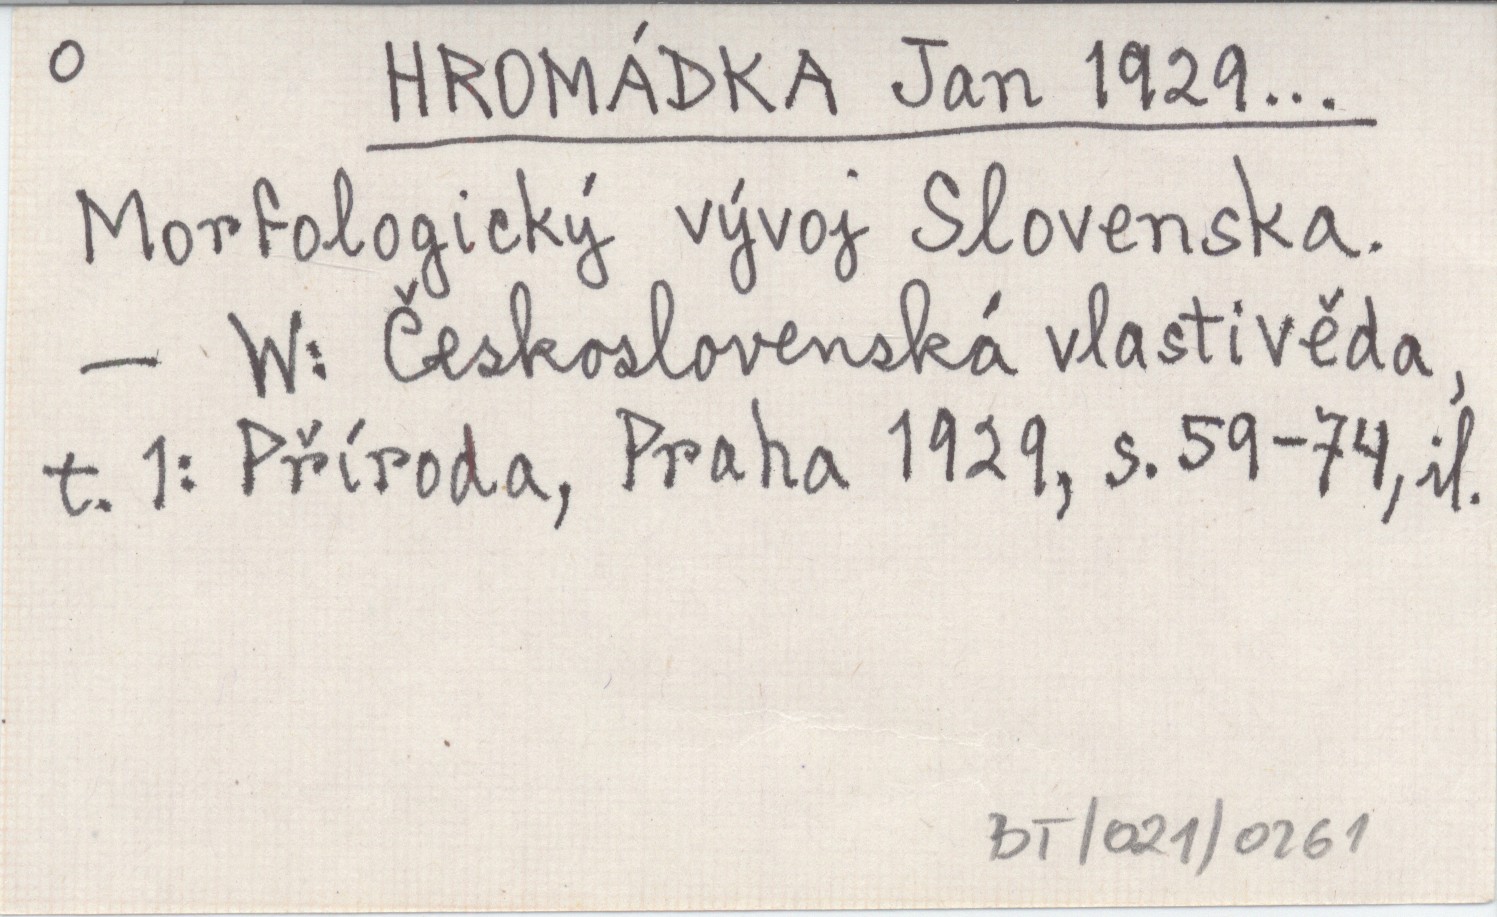 O HROMÁDKA Jan 1929...
Morfologický vývoj Slovenska.
— W: Československá vlastivěda,
t. 1: Příroda, Praha 1929, s. 59-74, il.
BT/021/0261